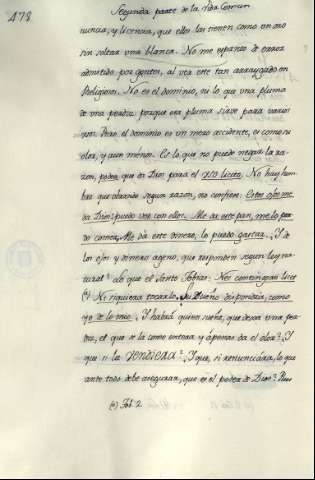 478
Segunda parte de la vida Comun
nuncia, y licencia, que ellos las tienen como un oro
sin soltar una blanca. No me espanto de error
admitido por gentes, al ver este tan arraygado en
Religion. No es el dominio, ni lo que una pluma
de una perdiz porque esa pluma sirve para varios
usos. Pero el dominio es un mero accidente, es como su
olor, y aun menos. Es lo que no puede negar la ra-
zon, podea que da Dios para el uso licito. No hay hom-
bre que obrando segun razon, no confiese. Estos ojos me
da Dios: puedo ver con ellos. Me da este pan, me lo pue-
do comer. Me da este dinero, lo puedo gastar. Y de
los ojos y dinero ageno, que responden segun ley na-
tural? Lo que el Santo Tobias. Nec contingere licet
(*) Ni siquiera tocarlo. Su Dueño dispondria, como
yo de lo mio. Y habrá quien sueña, que dexa una per-
diz, el que se la come entera y ápenas da el olor? Y
que si la vendiera? Y que, si renunciára, lo que
ante todo debe asegurar, que es el poder de Dios? Pues
(*) Tob. 2.